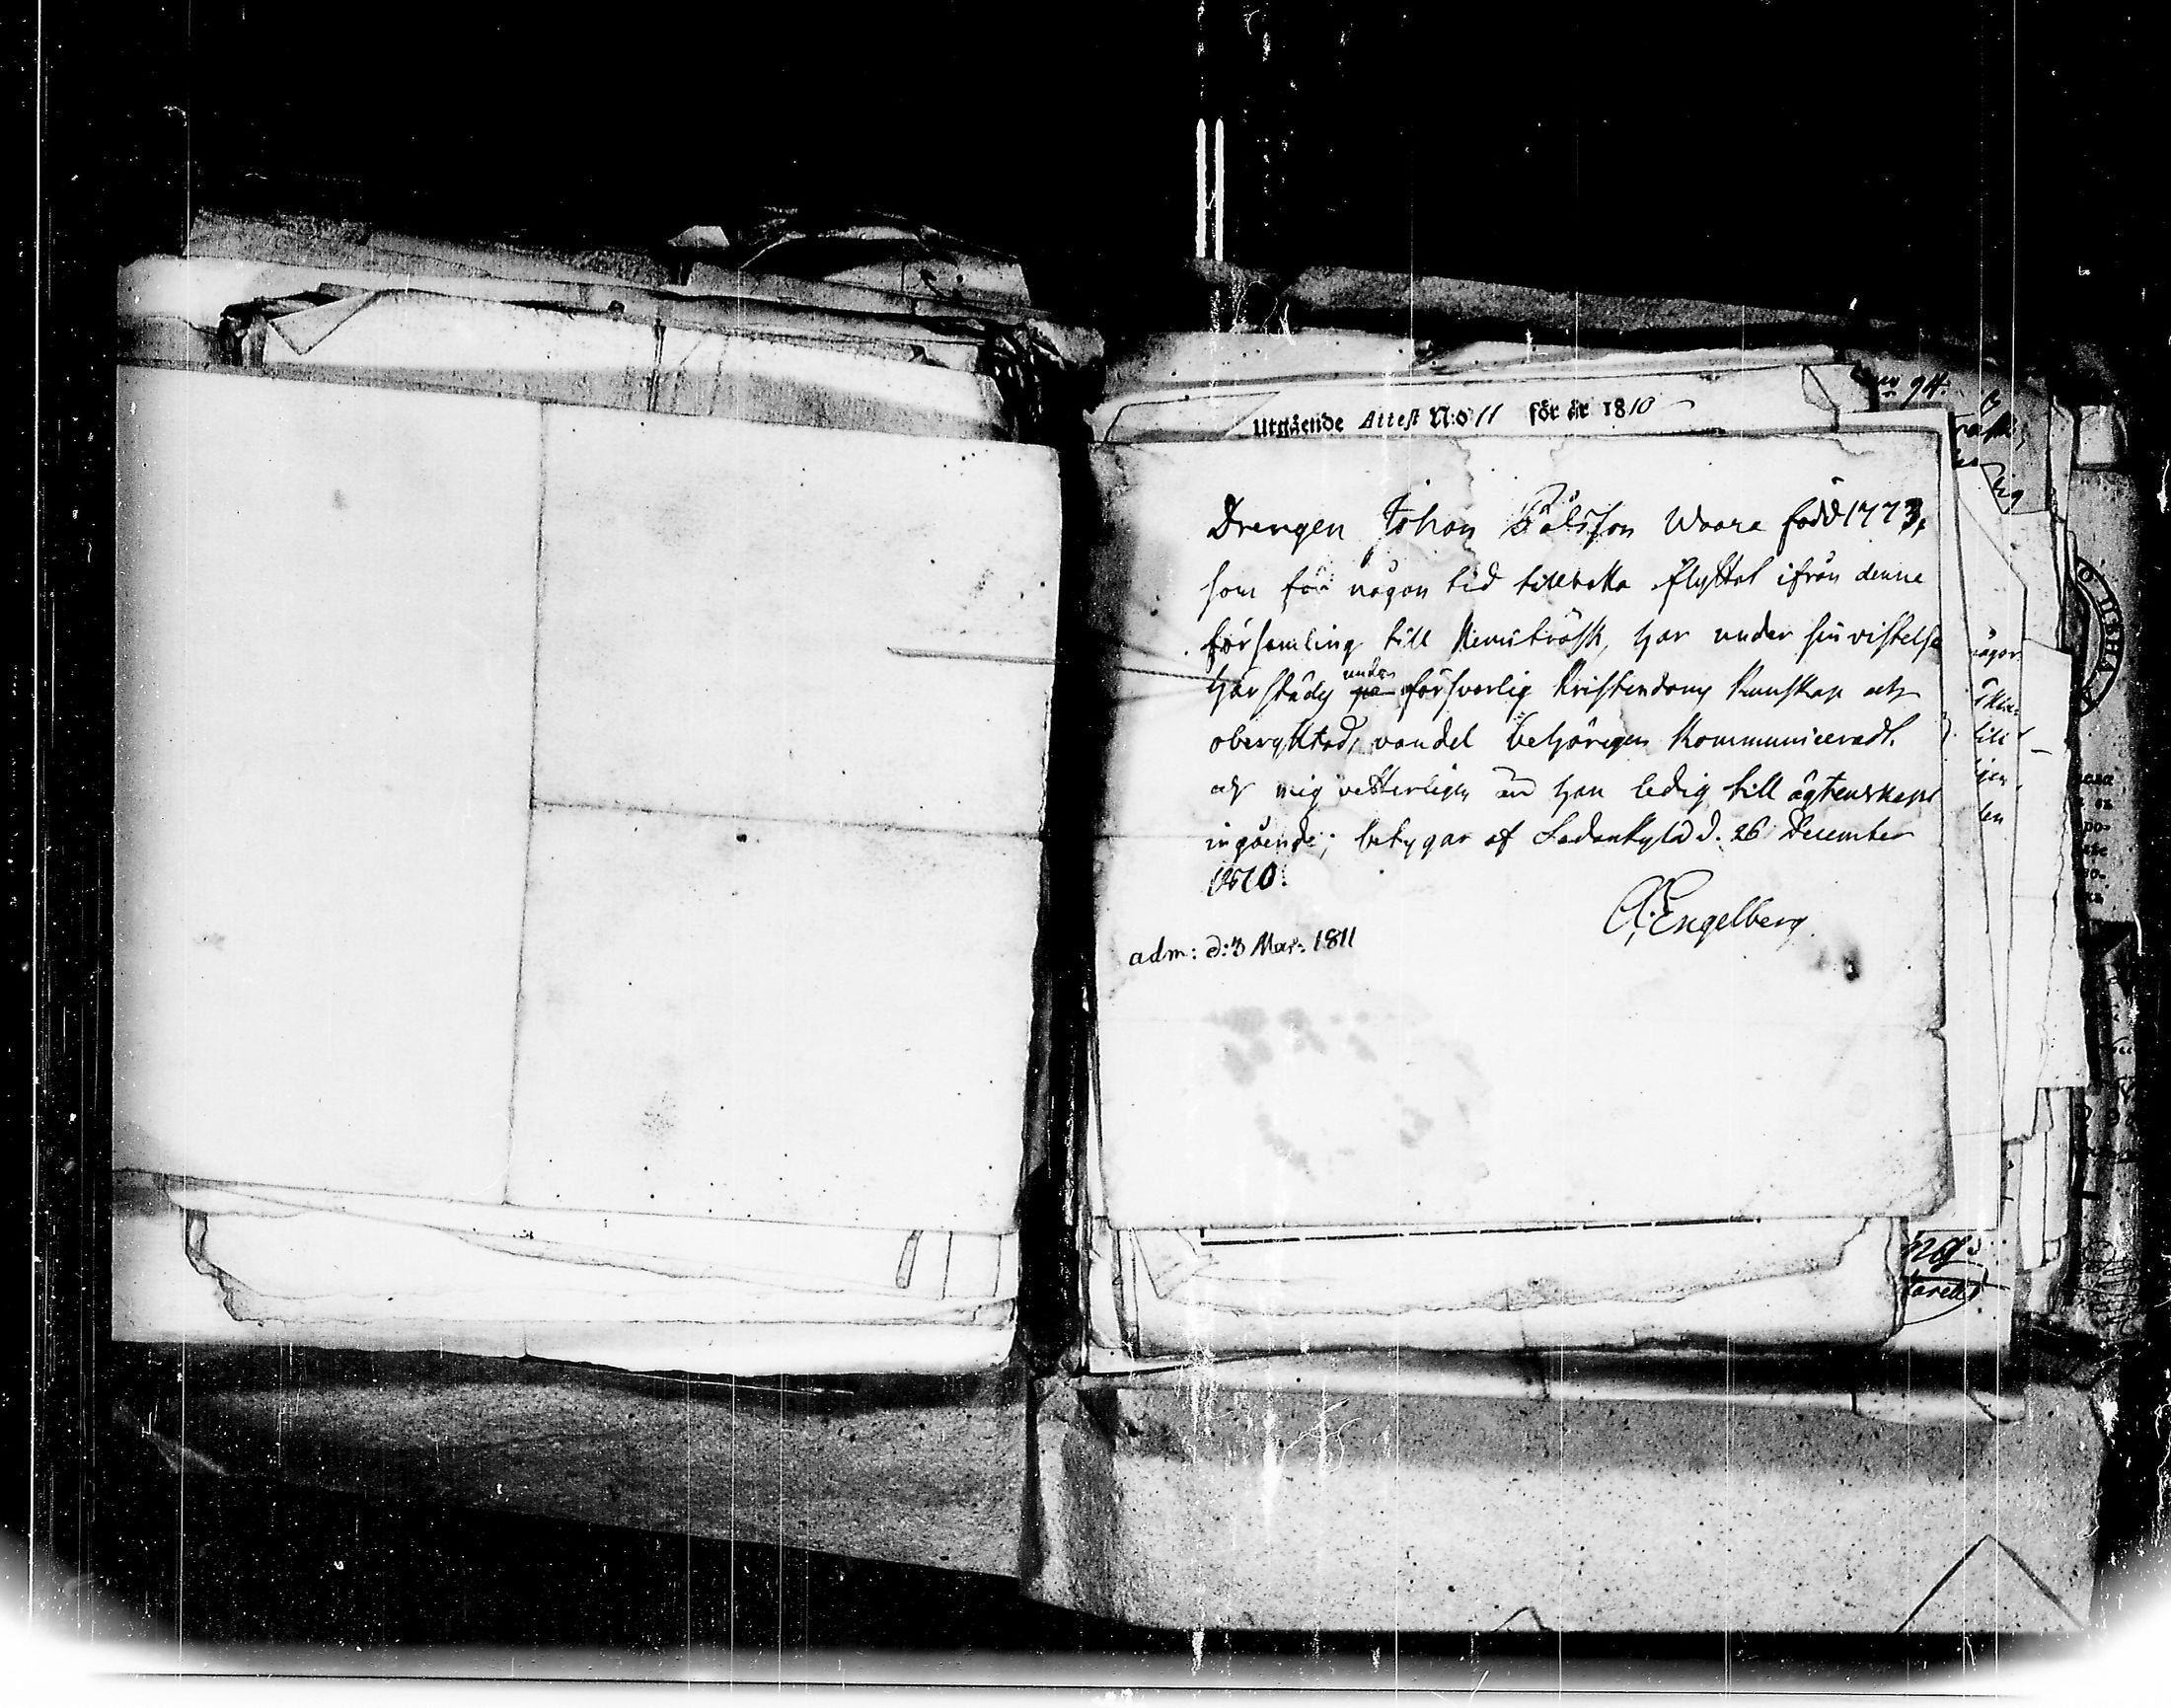 Utgående Attest N:o 11 för år 1810
Drengen Johan Pålsson Waara född 1773,
som för någon tid tillbakka flyttat ifrån denne
församling till Kemiträsk, har under sin vistelse
härstädes under försvarlig Kristendoms kunskap och
obergktad vandel behörigen Kommuniceradt.
och mig vetterligen är han ledig till ägtenskaps
ingående; betygar af Sodankylä d. 26 December
1810.
A: Engelberg
adm: d: 3 Mar: 1811